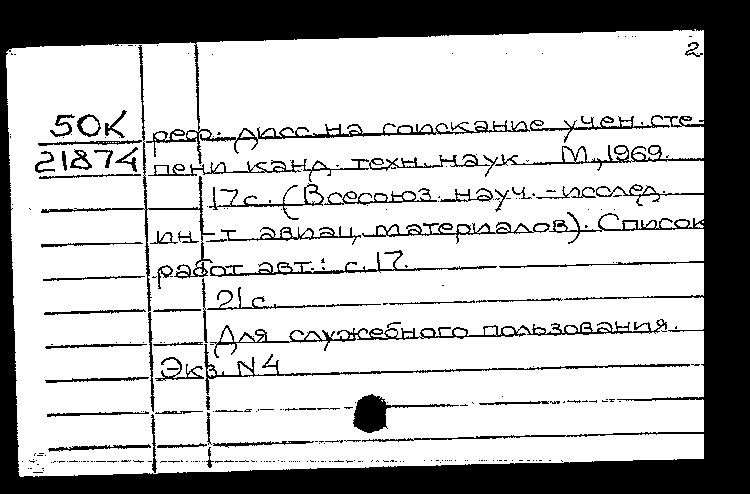 2
50К реф. дисс. на соискание учен. сте-
21874 пени канд. техн. наук. М., 1969.
17с. (Всесоюз. науч.-исслед.
ин-т авиац. материалов). Список
работ авт.: с. 17.
21с.
Для служебного пользования.
Экз. N4